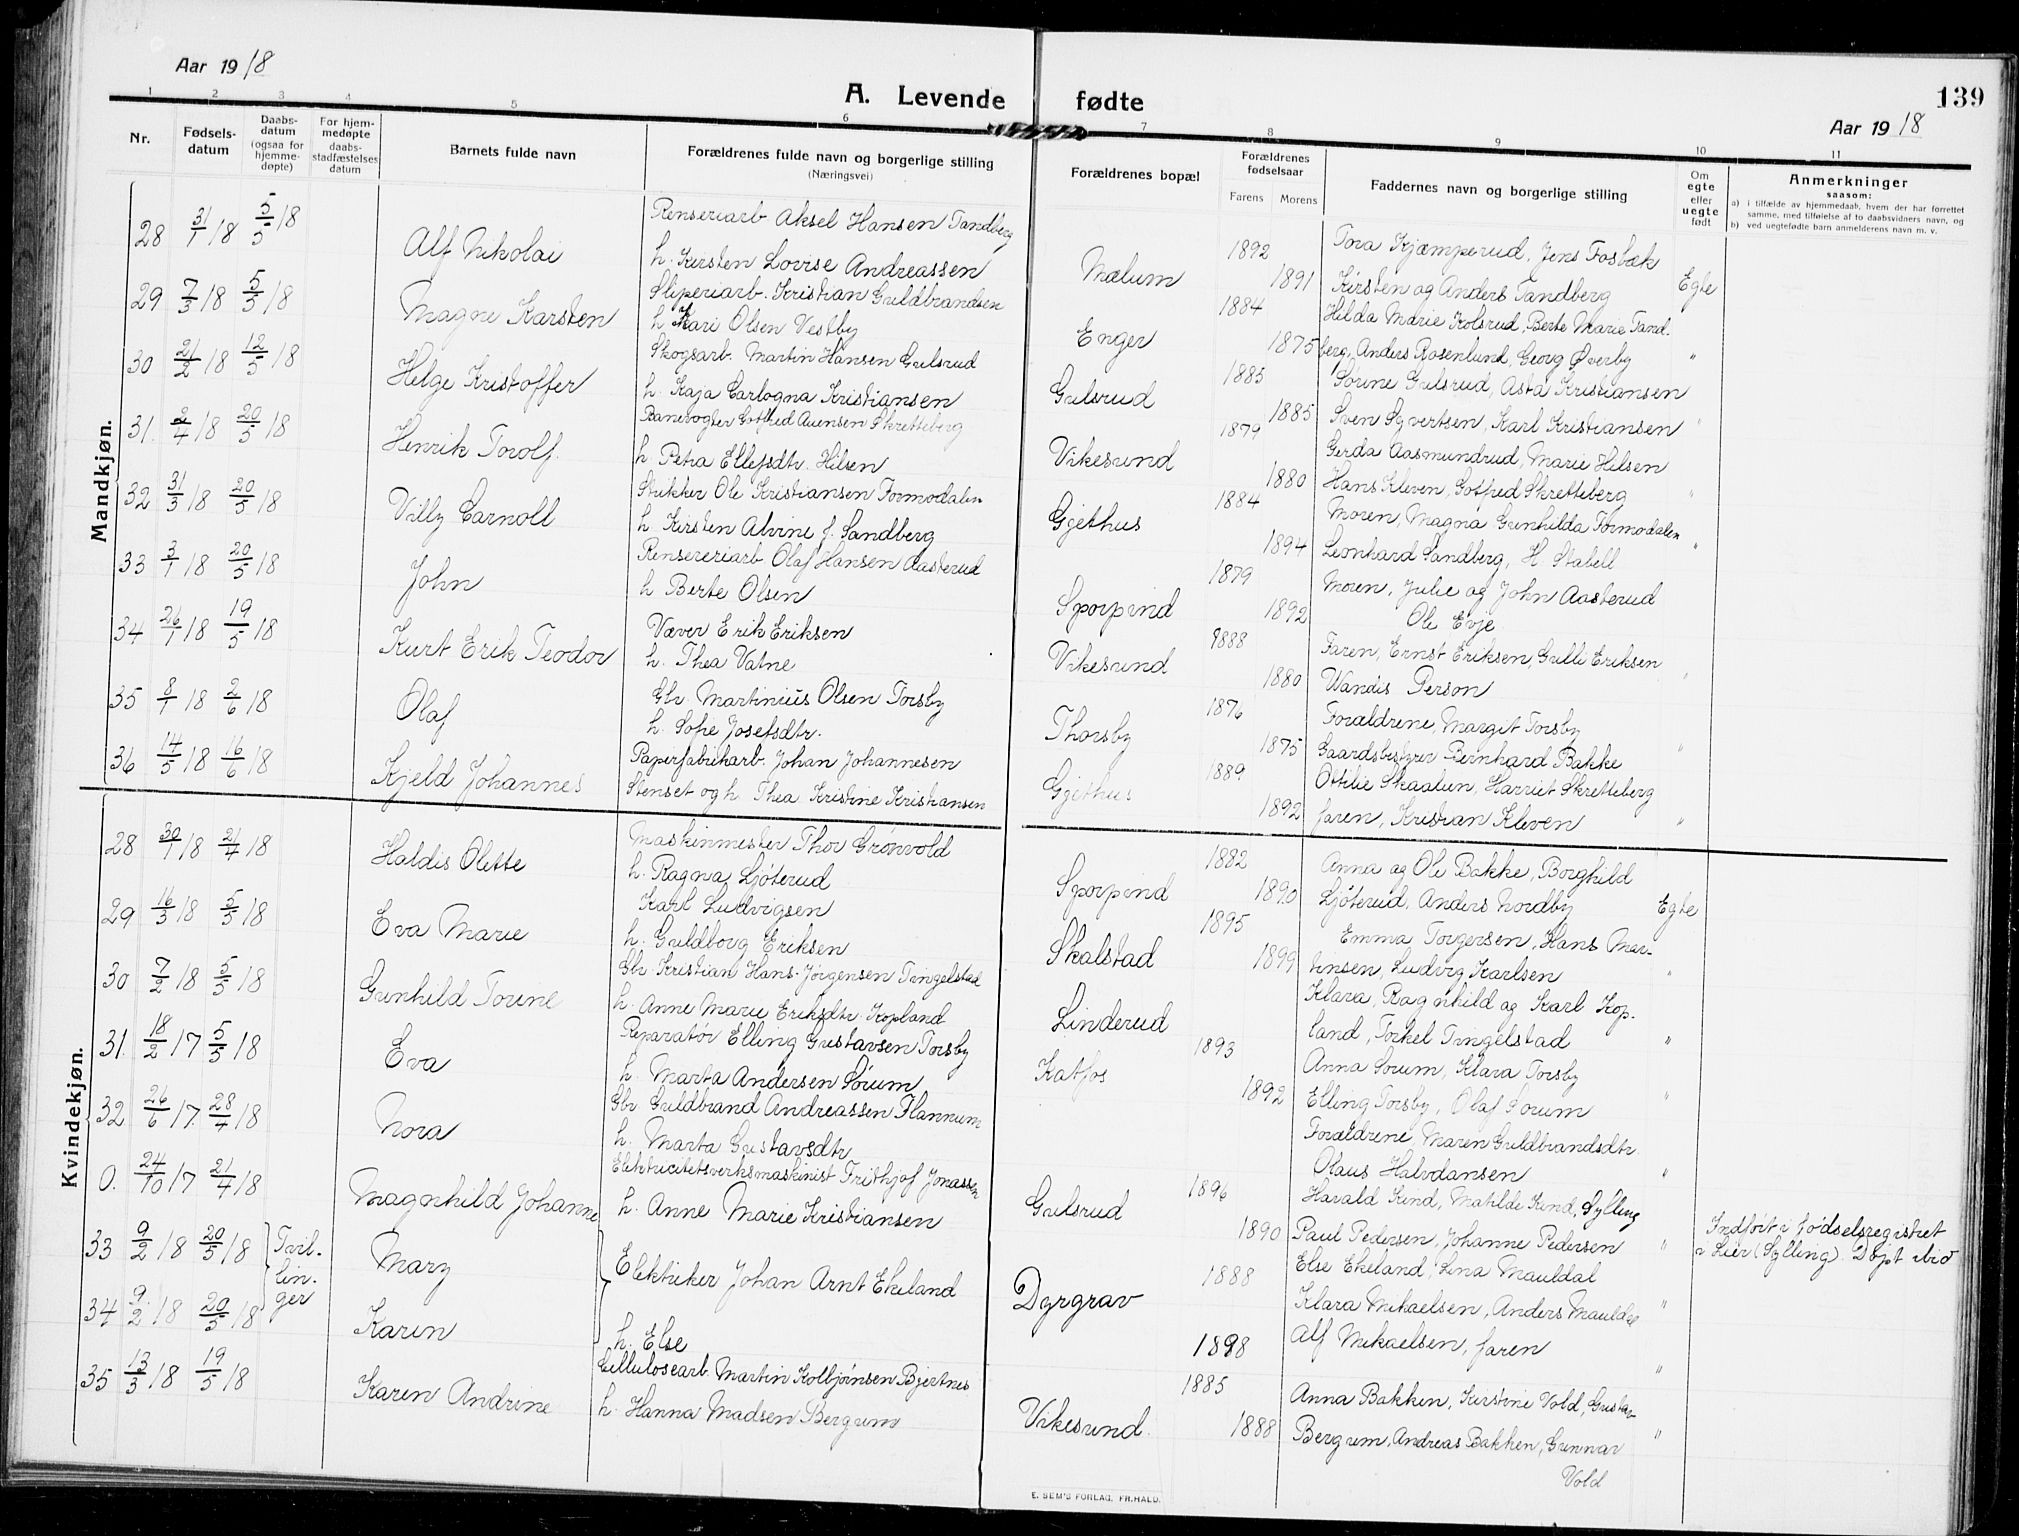 Aar 1918
A. Levende fødte
139
Aar 1918
1 2 3 4 5 6 7 8 9 10 11
Nr.
Fødsels-
datum
Daabs-
datum
(ogsaa for
hjemme-
døpte)
For hjem-
medøpte
daabs-
stadfæstelses
datum
Barnets fulde navn
Forældrenes fulde navn og borgerlige stilling
(Næringsvei)
Forældrenes bopæl
Forældrenes
fødselsaar
Farens Morens
Faddernes navn og borgerlige stilling
Om
egte
eller
uegte
født
Anmerkninger
saasom:
a) i tilfælde av hjemmedaab, hvem der har forrettet
samme, med tilføielse af to daabsvidners navn, og
b) ved uegtefødte barn anmelderens navn m. v.
Mandkjøn.
28 31/1 18 5/5 18 Alf Nikolai Renseriarb Aksel Hansen Tandberg 1892 Tora Kjæmperud, Jens Fosbæk
h. Kirsten Lovise Andreassen Mælum 1891 Kirsten og Anders Tandberg Egte
29 7/3 18 5/5 18 Magne Karsten Sliperiarb. Kristian Guldbrandsen 1884 Hilda Marie Kolsrud, Berte Marie Tand-
h. Kari Olsen Vestby Enger 1875 berg, Anders Rosenlund, Georg Øverby "
30 21/2 18 12/5 18 Helge Kristoffer Skogsarb. Martin Hansen Gulsrud 1885 Sørine Gulsrud, Asta Kristiansen
h. Kaja Carlogna Kristiansen Gulsrud 1885 Sven Syvertsen, Karl Kristiansen "
31. 2/4 18 20/5 18 Henrik Torolf. Banevogter Gotfred Auensen Skretteberg 1879 Gerda Aasmundrud, Marie Hilsen
h. Petra Ellefsdtr. Hilsen Vikesund 1880 Hans Kleven, Gotfred Skretteberg "
32 31/3 18 20/5 18 Villy Carnoll Strikker Ole Kristiansen Formodalen 1884 Moren, Magna Gunhilda Formodalen
h. Kirsten Alvine f. Sandberg Gjethus 1894 Leonhard Sandberg, H Stabell "
33 3/1 18 20/5 18 John Rensereriarb Olaf Hansen Aasterud 1879 Moren, Julie og John Aasterud
h Berte Olsen Sporpind 1892 Ole Evje
34 26/1 18 19/5 18 Kurt Erik Teodor Væver Erik Eriksen 1888 Faren, Ernst Eriksen, Gulli Eriksen
h. Thea Vatne Vikesund 1880 Wandis Person "
35 8/1 18 2/6 18 Olaf Gbr. Martinius Olsen Torsby 1876 Forældrene, Margit Torsby
h. Sofie Josefsdtr. Thorsby 1875 Gaardsbestyrer Bernhard Bakke "
36 14/5 18 16/6 18 Kjeld Johannes Papirfabrikarb. Johan Johannesen 1889 Ottilie Skaalun, Harriet Skretteberg
Stenset og h. Thea Kristine Kristiansen Gjethus 1892 faren, Kristian Kleven "
Kvindekjøn.
28 30/1 18 21/4 18 Haldis Olette Maskinmester Thor Grønvold 1882 Anna og Ole Bakke, Borghild
h. Ragna Ljøterud Sporpind 1890 Ljøterud, Anders Nordby Egte
29 16/3 18 5/5 18 Eva Marie Karl Ludvigsen 1895 Emma Torgersen, Hans Mar-
h. Guldborg Eriksen Skalstad 1899 tinsen, Ludvig Karlsen "
30 7/2 18 5/5 18 Gunhild Torine Gbr. Kristian Hans-Jørgensen Tingelstad Klara, Ragnhild og Karl Kop-
h. Anne Marie Eriksdtr. Kopland Linderud land, Torkel Tingelstad "
31. 18/2 17 5/5 18 Eva Reparatør Elling Gustavsen Torsby 1893 Anna Sørum, Klara Torsby
h. Marta Andersen Sørum Katfos 1892 Elling Torsby, Olaf Sorum "
32 26/6 17. 28/4 18 Nora Gbr Guldbrand Andreassen Flannum Forældrene, Maren Guldbrandsdtr.
h. Marta Gustavsdtr. Olaus Halvdansen "
0. 24/10 17 21/4 18 Magnhild Johanne Elektricitetsverksmaskinist Frithjof Jonassen 1896 Harald Kind, Matilde Kind, Sylling
h. Anne Marie Kristiansen Gulsrud 1890 Paul Pedersen, Johanne Pedersen " Indført i fødselsregistret
i Lier (Sylling). Døpt ibid
33 9/2 18 20/5 18 Tvil- Mary Elektriker Johan Arnt Ekeland 1888 Else Ekeland, Lina Mauldal
lin- Dyrgrav Klara Mikaelsen, Anders Mauldal "
34 9/2 18 20/5 18 ger Karin h. Else 1898 Alf Mikaelsen, faren "
35 13/3 18 19/5 18 Karen Andrine Cellulosearb. Martin Kolbjørnsen Bjertnes 1885 Anna Bakken, Kirstine Vold, Gustav
h. Hanna Madsen Bergum Vikesund. 1888 Bergum, Andreas Bakken, Gunnar "
Vold
E. SEM'S FORLAG, FR.HALD.